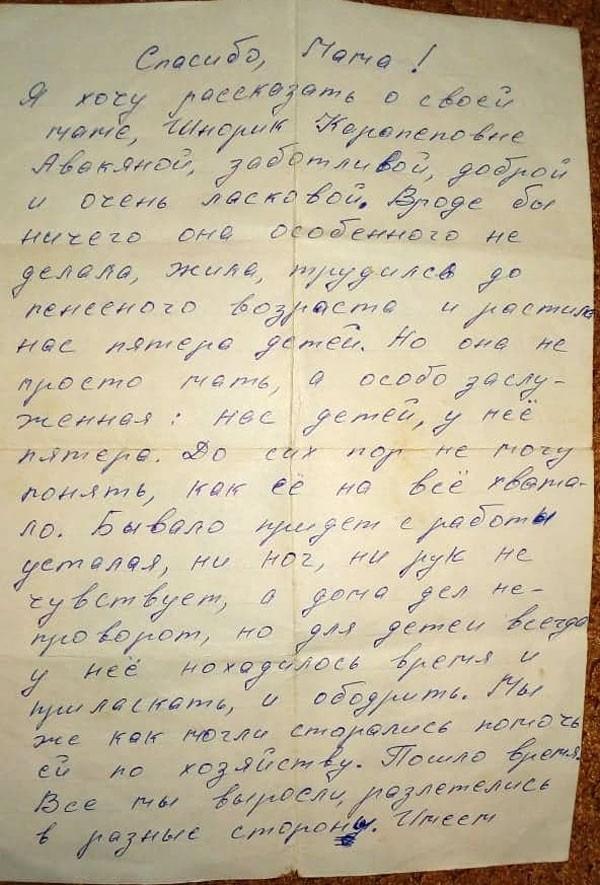 Спасибо, Мама!
Я хочу рассказать о своей
маме, Шнорик Карапеповне
Авакяной, заботливой, доброй
и очень ласковой. Вроде бы
ничего она особенного не
делала, жила, трудилсь до
пенсеного возраста и растила
нас пятера детей. Но она не
просто мать, а особо заслу-
женная: нас детей, у неё
пятера. До сих пор не могу
понять, как её на всё хвата-
ло. Бывало придет с работы
усталая, ни ног, ни рук не
чувствует, а дома дел не-
проворот, но для детей всегда
у неё нохадилось время и
приласкать, и ободрить. Мы
же как могли старались помочь
ей по хозяйству. Пошло время.
Все мы выросли, разлетелись
в разные стороны. Имеем